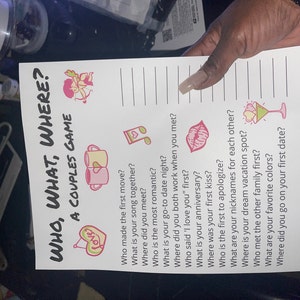 WHO, WHAT, WHERE?
A COUPLES GAME
Who made the first move?
What is your song together?
Where did you meet?
Who is the most romantic?
What is your go-to date night?
Where did you both work when you met?
Who said 'I love you" first?
What is your anniversary?
Where was your first kiss?
Who is the first to apologize?
What are your nicknames for each other?
Where is your dream vacation spot?
Who met the other family first?
What are your favorite colors?
Where did you go on your first date?